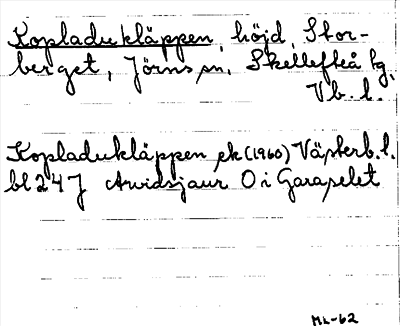 Kopladukläppen, höjd, Stor-
berget, Jörns sn, Skellefteå kg,
Vb. l.
Kopladukläppen ek (1960) Västerb. l.
bl 24 J Arvidsjaur O i Garaselet
ML-62